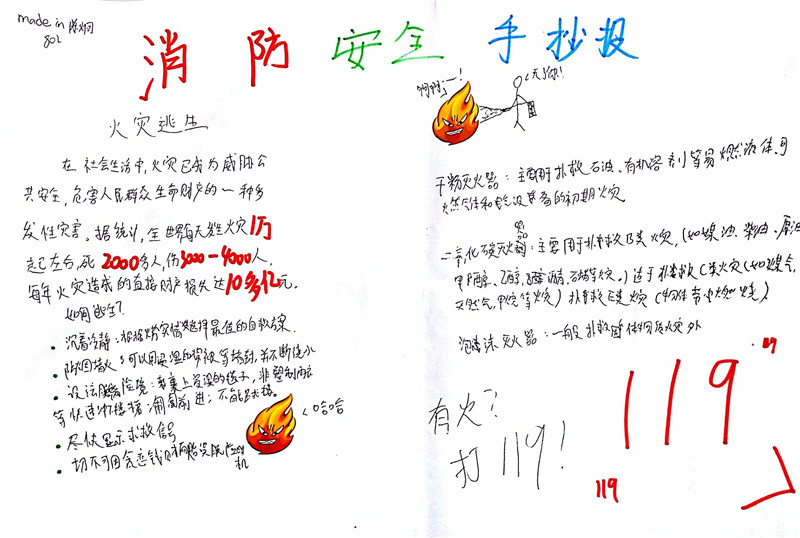 made in 陈炯
802
消防安全手抄报
火灾逃生
在社会生活中,火灾已成为威胁公
共安全,危害人民群众生命财产的一种多
发性灾害。据统计,全世界每天发生火灾1万
起左右,死2000多人,伤3000-4000人,
每年火灾造成的直接财产损失达10多亿元.
如何逃生?
沉着冷静:根据火灾情选择最佳的自救方案.
防烟
设法脱离险境:
等快速
尽快显示求救信号
切不可因贪恋钱财
机
哈哈
啊啊——!
干粉灭火器:主要用于扑救石油、有机溶剂等易燃液体、可
燃气体和电气设备的初期火灾
二氧化碳灭火器:主要用于扑救B类火灾,(如煤油、柴油、原油
甲醇、乙醇、沥青、石蜡等火灾。)适于扑救C类火灾(如煤气,
天然气,甲烷等火灾)扑救E类火灾(物体带电燃烧)
泡沫灭火器:一般扑救固体物质火灾外
有火?
打119!
119
119
119